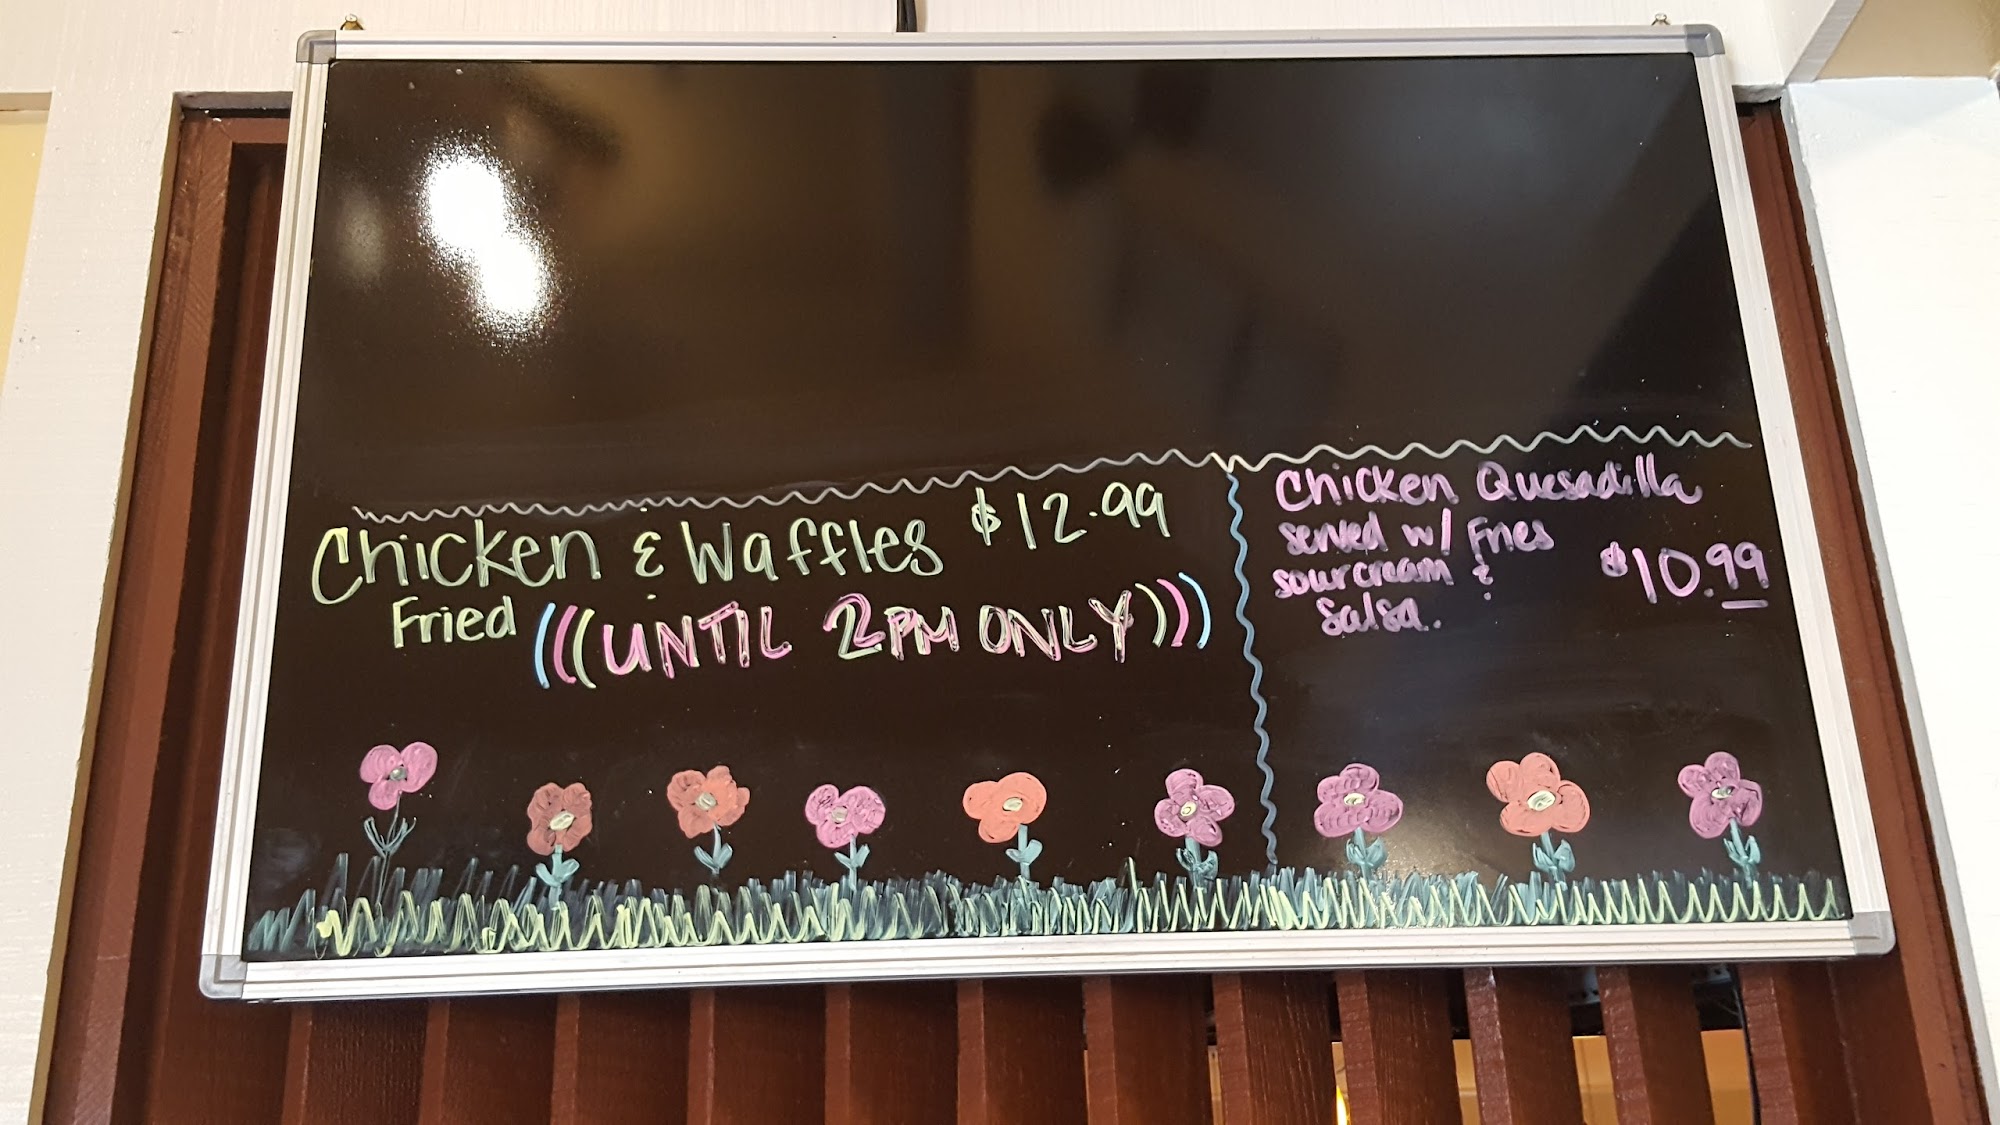 Chicken & Waffles $12.99
Fried (((UNTIL 2PM ONLY)))
Chicken Quesadilla
served w/ Fries
sour cream &
salsa.
$10.99